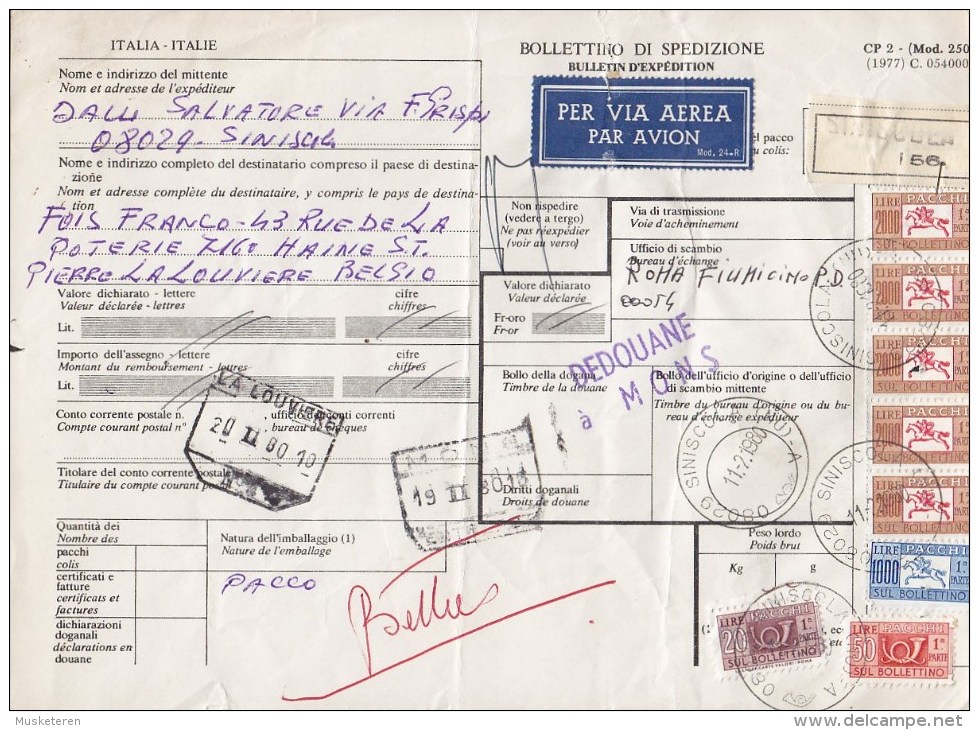 ITALIA - ITALIE
BOLLETTINO DI SPEDIZIONE
BULLETIN D'EXPÉDITION
CP 2 - (Mod. 250
(1977) C. 054000
Nome e indirizzo del mittente
Nom et adresse de l'expéditeur
DALU SALVATORE VIA F CRISPI
08029 - SINISCOLA
PER VIA AEREA
PAR AVION
Mod. 24-R
el pacco
u colis:
156
Nome e indirizzo completo del destinatario compreso il paese di destina-
zione
Nom et adresse complète du destinataire, y compris le pays de destina-
tion
FOIS FRANCO - 43 RUE DE LA
POTERIE 7160 HAINE ST.
PIERRE LA LOUVIERE BELGIO
Non rispedire
(vedere a tergo)
Ne pas réexpédier
(voir au verso)
Via di trasmissione
Voie d'acheminement
Ufficio di scambio
Bureau d'échange
ROMA FIUMICINO P.D.
00054
Valore dichiarato - lettere
Valeur déclarée - lettres
cifre
chiffres
Lit.
Valore dichiarato
Valeur déclarée
Fr-oro
Fr-or
DEDOUANE
à MONS
Importo dell'assegno - lettere
Montant du remboursement - lettres
cifre
chiffres
Lit.
Bollo della dogana
Timbre de la douane
Bollo dell'ufficio d'origine o dell'ufficio
di scambio mittente
Timbre du bureau d'origine ou du bu-
reau d'échange expéditeur
LA LOUVIERE
20 II 80 10
Conto corrente postale n.
Compte courant postal n°
, ufficio dei conti correnti
, bureau de chèques
19 II 80 18
08029 SINISCOLA (NU) - A
11-2.1980
Titolare del conto corrente postale
Titulaire du compte courant postal
Diritti doganali
Droits de douane
Quantità dei
Nombre des
Natura dell'imballaggio (1)
Nature de l'emballage
Peso lordo
Poids brut
Kg
g
pacchi
colis
certificati e
fatture
certificats et
factures
dichiarazioni
doganali
déclarations en
douane
PACCO
LIRE PACCHI
2000 1ª PARTE
SUL BOLLETTINO
LIRE PACCHI
2000 1ª PARTE
SUL BOLLETTINO
LIRE PACCHI
2000 1ª PARTE
SUL BOLLETTINO
LIRE PACCHI
2000 1ª PARTE
SUL BOLLETTINO
LIRE PACCHI
2000 1ª PARTE
SUL BOLLETTINO
LIRE PACCHI
1000 1ª PARTE
SUL BOLLETTINO
LIRE PACCHI
20 1ª PARTE
SUL BOLLETTINO
LIRE PACCHI
50 1ª PARTE
SUL BOLLETTINO
Musketeren
www.delcampe.net